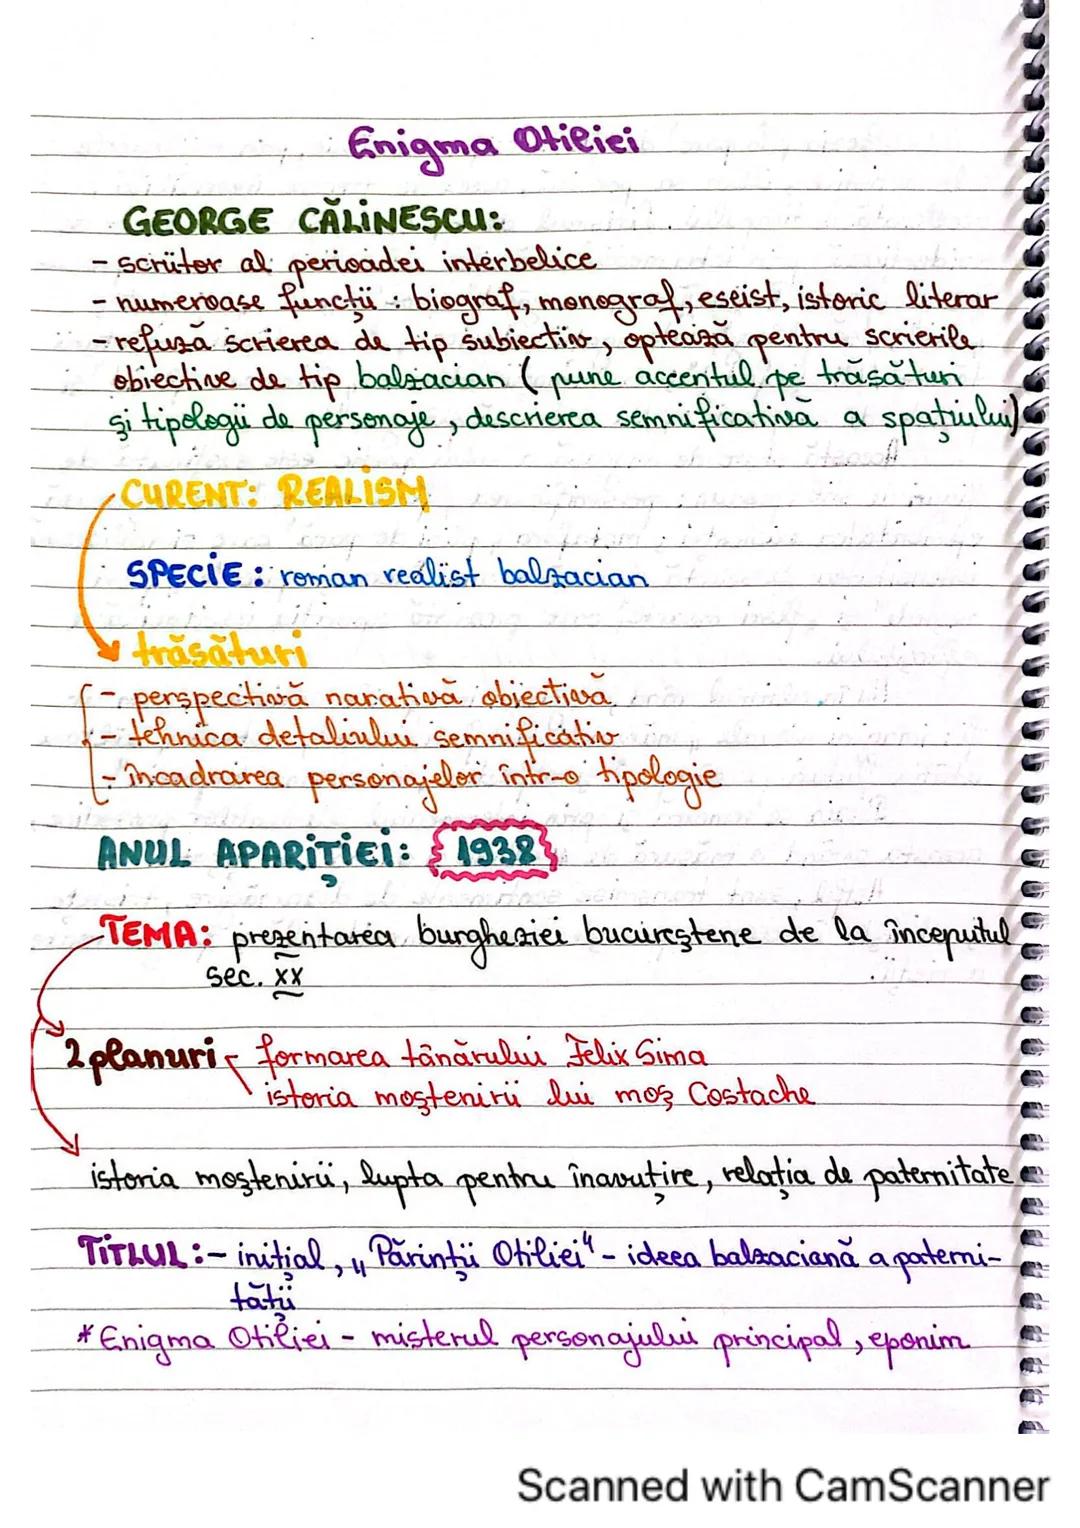 Enigma Otiliei
GEORGE CĂLINESCU:
- scriitor al perioadei interbelice
- numeroase funcții : biograf, monograf, eseist, istoric literar
- refuză scrierea de tip subiectiv, optează pentru scrierile
obiective de tip balzacian ( pune accentul pe trăsături
și tipologii de personaje, descrierea semnificativă a spațiului)
CURENT: REALISM
SPECIE : roman realist balzacian
trăsături
- perspectivă narativă obiectivă
- tehnica detaliului semnificativ
- încadrarea personajelor într-o tipologie
ANUL APARIȚIEI: 1938
TEMA: prezentarea burgheziei bucureștene de la începutul
sec. XX
2 planuri formarea tânărului Felix Sima
istoria moștenirii lui moș Costache
istoria moștenirii, lupta pentru înavuțire, relația de paternitate
TITLUL :- inițial, „Părinții Otiliei“ - ideea balzaciană a paterni-
tății
* Enigma Otiliei - misterul personajului principal, eponim
Scanned with CamScanner